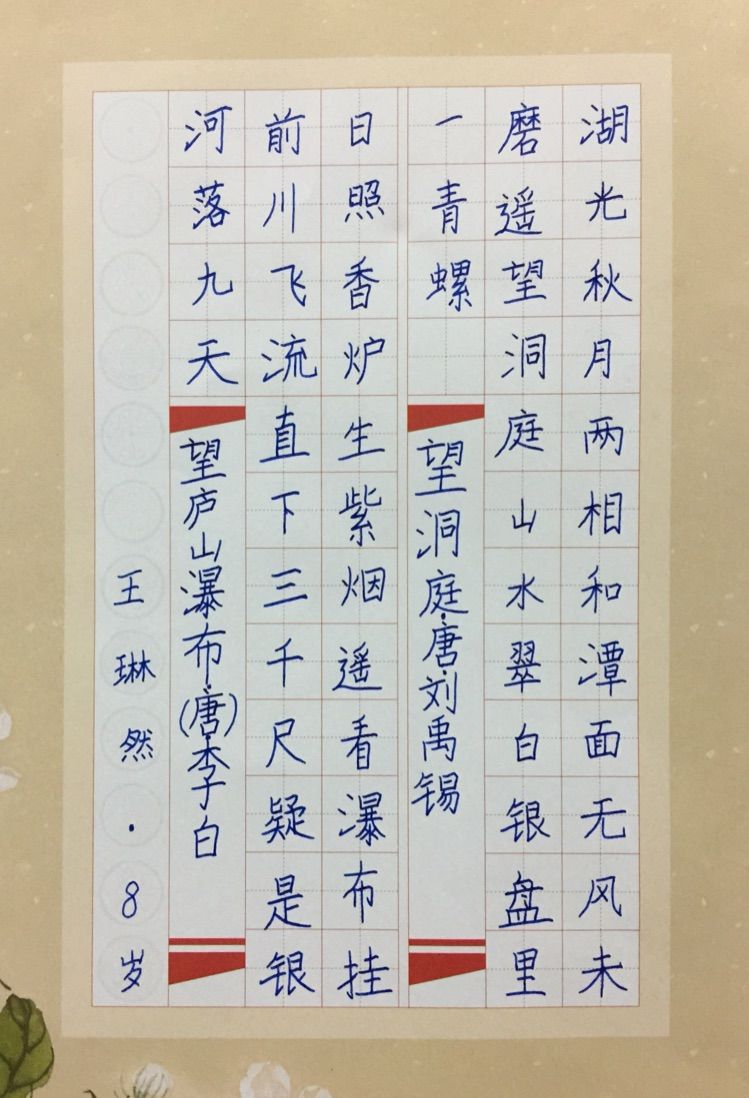 湖光秋月两相和潭面无风未
磨遥望洞庭山水翠白银盘里
一青螺
望洞庭·唐·刘禹锡
日照香炉生紫烟遥看瀑布挂
前川飞流直下三千尺疑是银
河落九天
望庐山瀑布·(唐)·李白
王琳然·8岁